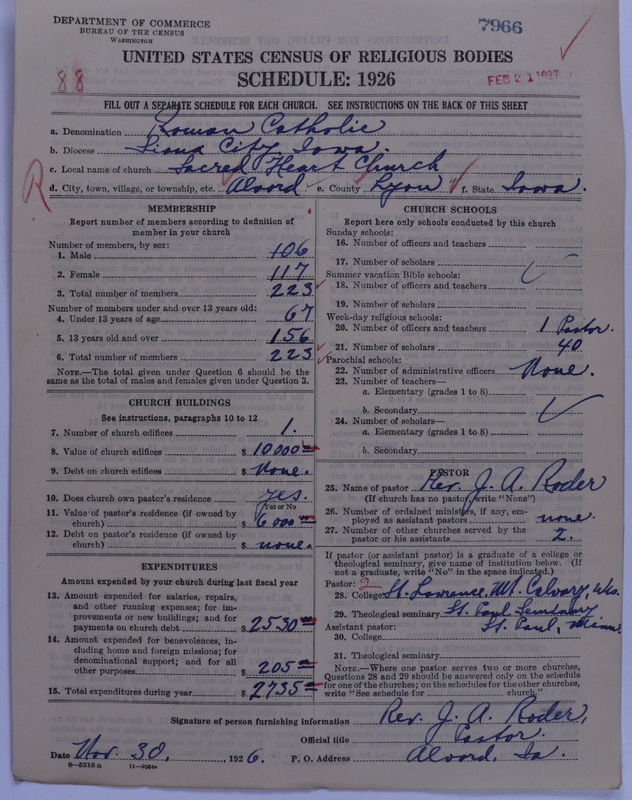 DEPARTMENT OF COMMERCE
BUREAU OF THE CENSUS
WASHINGTON
7966
UNITED STATES CENSUS OF RELIGIOUS BODIES
SCHEDULE: 1926
88
FEB 21 1927
FILL OUT A SEPARATE SCHEDULE FOR EACH CHURCH. SEE INSTRUCTIONS ON THE BACK OF THIS SHEET
a. Denomination Roman Catholic
b. Diocese Sioux City, Iowa.
c. Local name of church Sacred Heart Church
R
d. City, town, village, or township, etc. Alvord e. County Lyon f. State Iowa.
MEMBERSHIP
Report number of members according to definition of member in your church
Number of members, by sex:
1. Male 106
2. Female 117
3. Total number of members 223
Number of members under and over 13 years old:
4. Under 13 years of age 67
5. 13 years old and over 156
6. Total number of members 223
NOTE.—The total given under Question 6 should be the
same as the total of males and females given under Question 3.
CHURCH BUILDINGS
See instructions, paragraphs 10 to 12
7. Number of church edifices 1.
8. Value of church edifices $ 10,000
9. Debt on church edifices $ None.
10. Does church own pastor's residence yes.
Yes or No
11. Value of pastor's residence (if owned by
church) $ 6,000
12. Debt on pastor's residence (if owned by
church) $ none.
EXPENDITURES
Amount expended by your church during last fiscal year
13. Amount expended for salaries, repairs,
and other running expenses; for im-
provements or new buildings; and for
payments on church debt $ 2530
14. Amount expended for benevolences, in-
cluding home and foreign missions; for
denominational support; and for all
other purposes $ 205
15. Total expenditures during year $ 2735
CHURCH SCHOOLS
Report here only schools conducted by this church
Sunday schools:
16. Number of officers and teachers
17. Number of scholars
Summer vacation Bible schools:
18. Number of officers and teachers
19. Number of scholars
Week-day religious schools:
20. Number of officers and teachers 1 Pastor.
21. Number of scholars 40
Parochial schools:
22. Number of administrative officers None.
23. Number of teachers—
a. Elementary (grades 1 to 8)
b. Secondary
24. Number of scholars—
a. Elementary (grades 1 to 8)
b. Secondary
PASTOR
25. Name of pastor Rev. J. A. Roder
(If church has no pastor, write "None")
26. Number of ordained ministers, if any, em-
ployed as assistant pastors none.
27. Number of other churches served by the
pastor or his assistants 2.
If pastor (or assistant pastor) is a graduate of a college or
theological seminary, give name of institution below. (If
not a graduate, write "No" in the space indicated.)
Pastor: 2
28. College St. Lawrance, Mt. Calvary, Wis.
29. Theological seminary St. Paul Seminary
Assistant pastor: St. Paul, Minn.
30. College
31. Theological seminary
NOTE.—Where one pastor serves two or more churches,
Questions 28 and 29 should be answered only on the schedule
for one of the churches; on the schedules for the other churches,
write "See schedule for church."
Signature of person furnishing information Rev. J. A. Roder,
Official title Pastor.
Date Nov. 30, 1926. P. O. Address Alvord, Ia.
8—5518 a